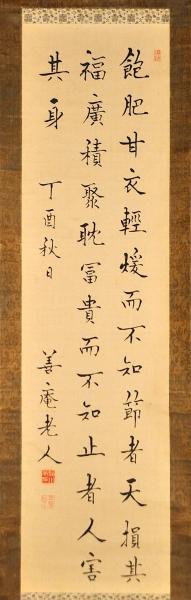 飽肥甘衣輕煖而不知節者天損其
福廣積聚耽冨貴而不知止者人害
其身　丁酉秋日　善庵老人